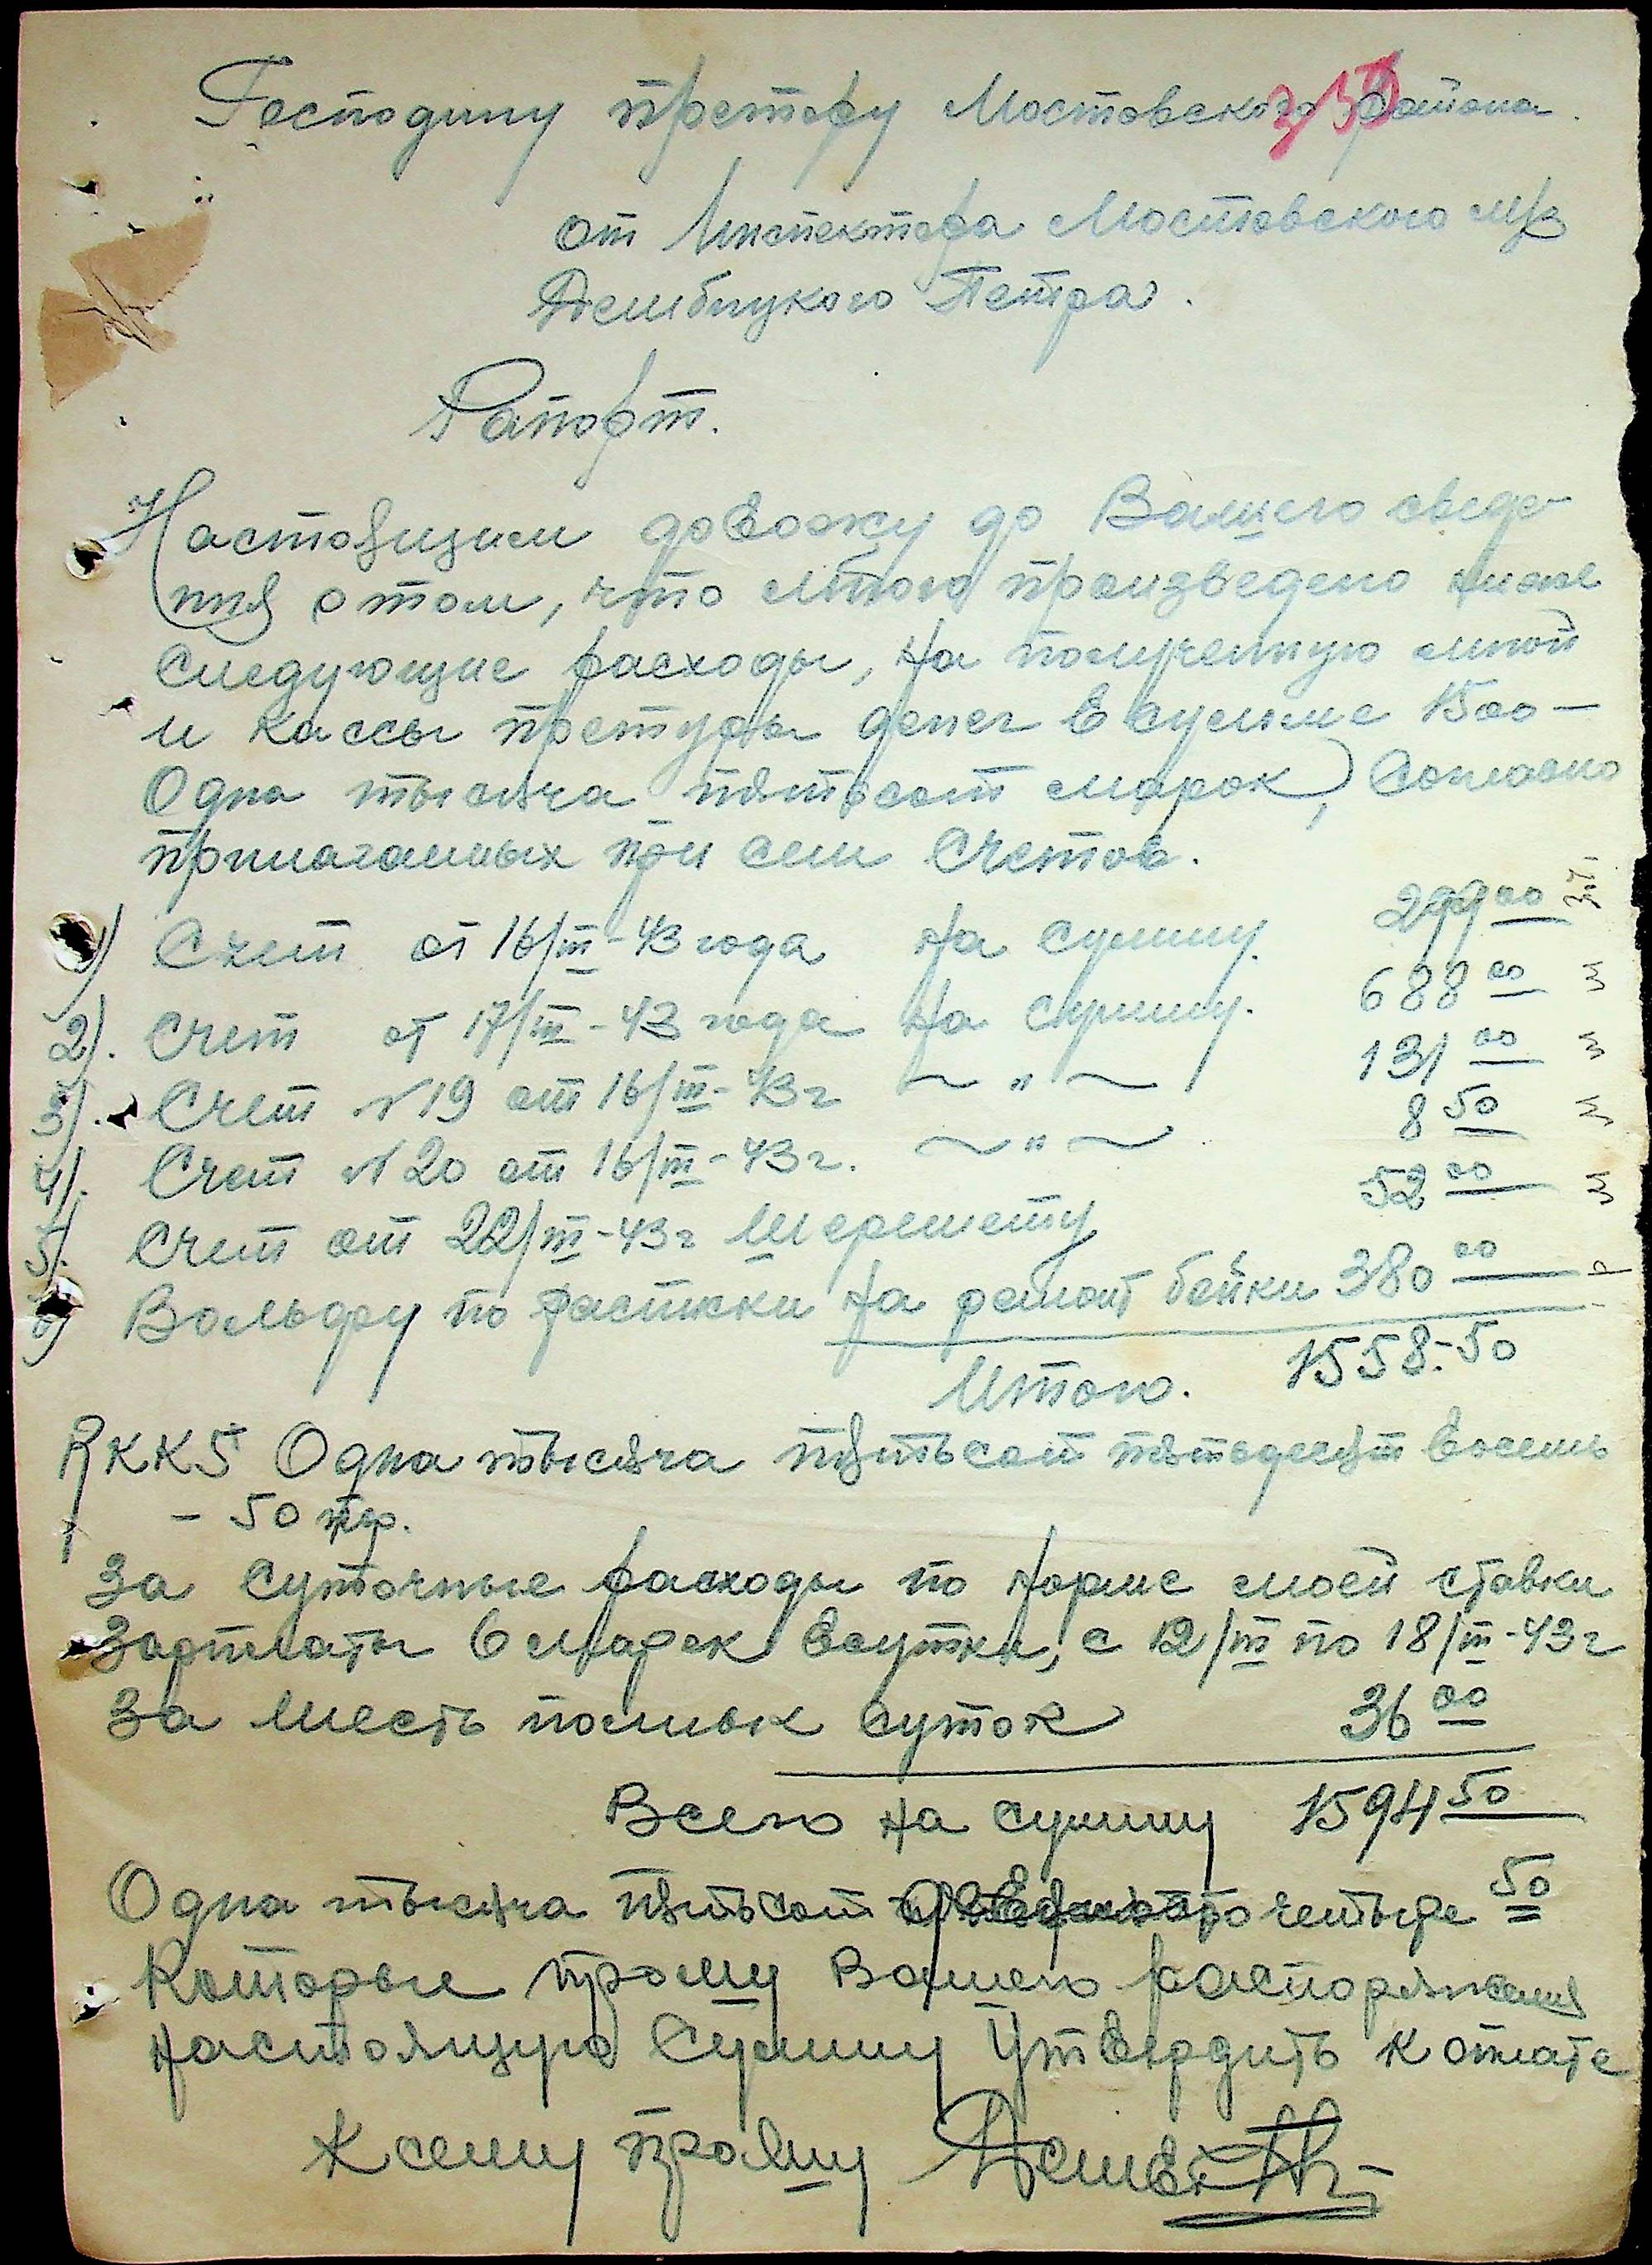 Господину претору Мостовского района.
от Инспектора Мостовского м/з
Дембицкого Петра.
Рапорт.
Настоящим довожу до Вашего сведе-
ния о том, что мною произведено ниже
следующие расходы, на полученную мной
и кассы претуры денег в сумме 1500 —
Одна тысяча пятьсот марок, Согласно
прилагаемых при сем Счетов.
1) Счет от 16/III-43 года на сумму. 299 00
2). Счет от 17/III-43 года на сумму. 688 00
3). Счет №19 от 16/III-43г ~ " ~ 131 00
4). Счет №20 от 16/III-43г. ~ " ~ 8 50
5). Счет от 22/III-43г Шеремету 52 00
6) Вольфу по расписки на ремонт бочки 380 00
Итого. 1558.-50
RKKS Одна тысяча пятьсот пятьдесят восемь
- 50 пф.
За суточные расходы по норме моей ставки
Зарплаты 6 марок всутки, с 12/III по 18/III-43г
За шесть полных суток 36 00
Всего на сумму 1594 50
Одна тысяча пятьсот четыре 50
Которые прошу Вашего распоряжения
настоящую Сумму Утвердить к оплате
К сему прошу